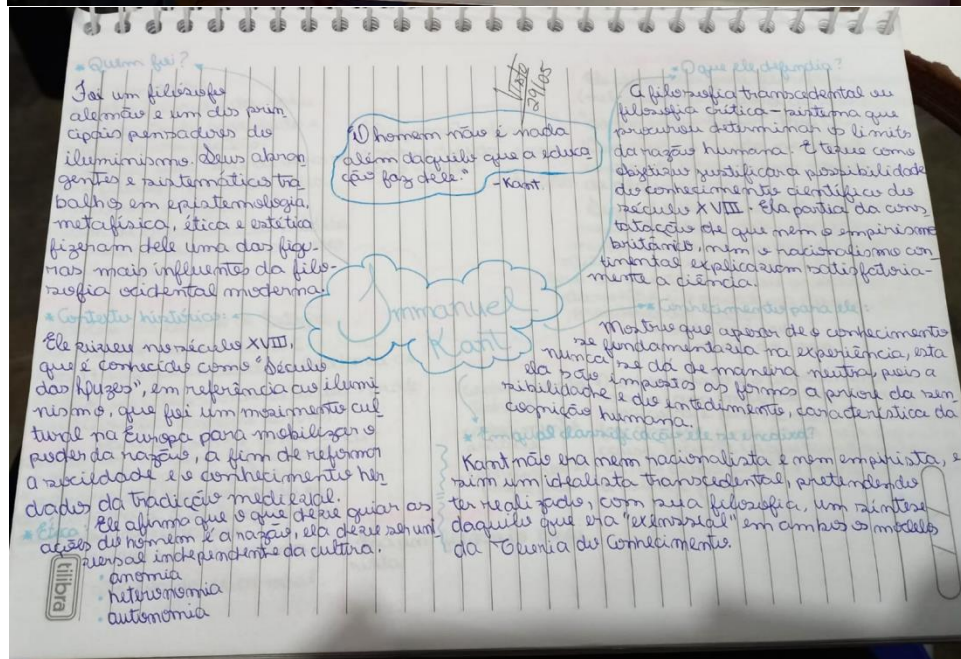 * Quem foi?
Foi um filósofo
alemão e um dos prin
cipais pensadores do
iluminismo. Seus abran
gentes e sistemáticos tra
balhos em epistemologia,
metafísica, ética e estética
fizeram dele uma das figu-
ras mais influentes da filo-
sofia ocidental moderna.
* Contexto histórico:
Ele viveu no século XVIII,
que é conhecido como "Século
das Luzes", em referência ao ilumi
nismo, que foi um movimento cul
tural na Europa para mobilizar o
poder da razão, a fim de reformar
a sociedade e o conhecimento her
dados da tradição medieval.
* Ética:
Ele afirma que o que deve guiar as
ações do homem é a razão, ela deve ser uni
versal independente da cultura.
• anomia
• heteronomia
• autonomia
tilibra
"O homem não é nada
além daquilo que a educa
ção faz dele."
- Kant.
Visto
29/05
Immanuel
Kant
* O que ele defendia?
A filosofia transcedental ou
filosofia crítica - sistema que
procurou determinar os limits
da razão humana. E teve como
objetivo justificar a possibilidade
do conhecimento científico do
século XVIII. Ela partia da cons
tatação de que nem o empirismo
britânico, nem o racionalismo con
tinental explicaviam satisfatoria-
mente a ciência.
* Conhecimento para ele:
Mostrou que apesar de o conhecimento
se fundamentaria na experiência, esta
nunca se dá de maneira neutra, pois a
ela são impostos as formas a priore da sen
sibilidade e do intedimento, característica da
cognição humana.
* Em qual classificação ele se encaixa?
Kant não era nem racionalista e nem empirista, e
sim um idealista transcedental, pretendendo
ter realizado, com sua filosofia, um síntese
daquilo que era "exenssial" em ambos os modelos
da Teoria do Conhecimento.